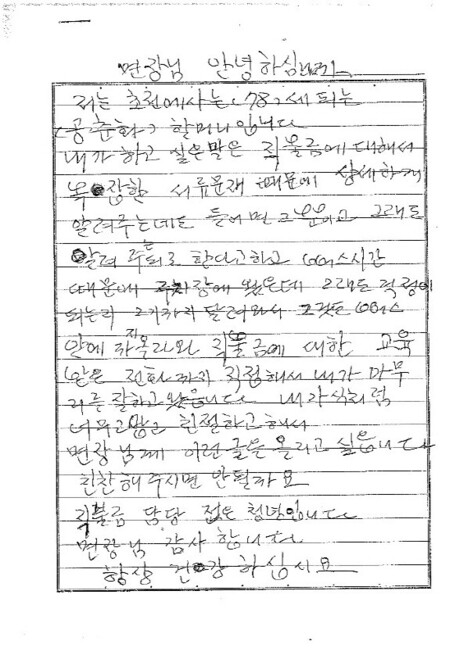 면장님 안녕하심니까
저는 초천에사는 (78)세 되는
(공춘화) 할머니입니다
내가 하고 싶은말은 직불금에대해서
복잡한 서류문재 때문에 상세하개
알려주는데도 들어면 그뿐이고 그래도
알려 주는되로 한다고하고 버스시간
때문에 주차장에 왔은데 그래도 걱정이
되는지 거기까지 달려와서 그것도 버스
앞에 자리와 직불금에 대한 교육
받은 전화까지 직접해서 내가 마무
리를 잘하고 왔읍니다 내자식처럼
너무고맙고 친절하고해서
면장님께 이런 글을 올리고 싶읍니다
친찬해주시면 안될까요
직불금 담당 접은 청년입니다
면장님 감사 합니다
항상 건강 하십시요